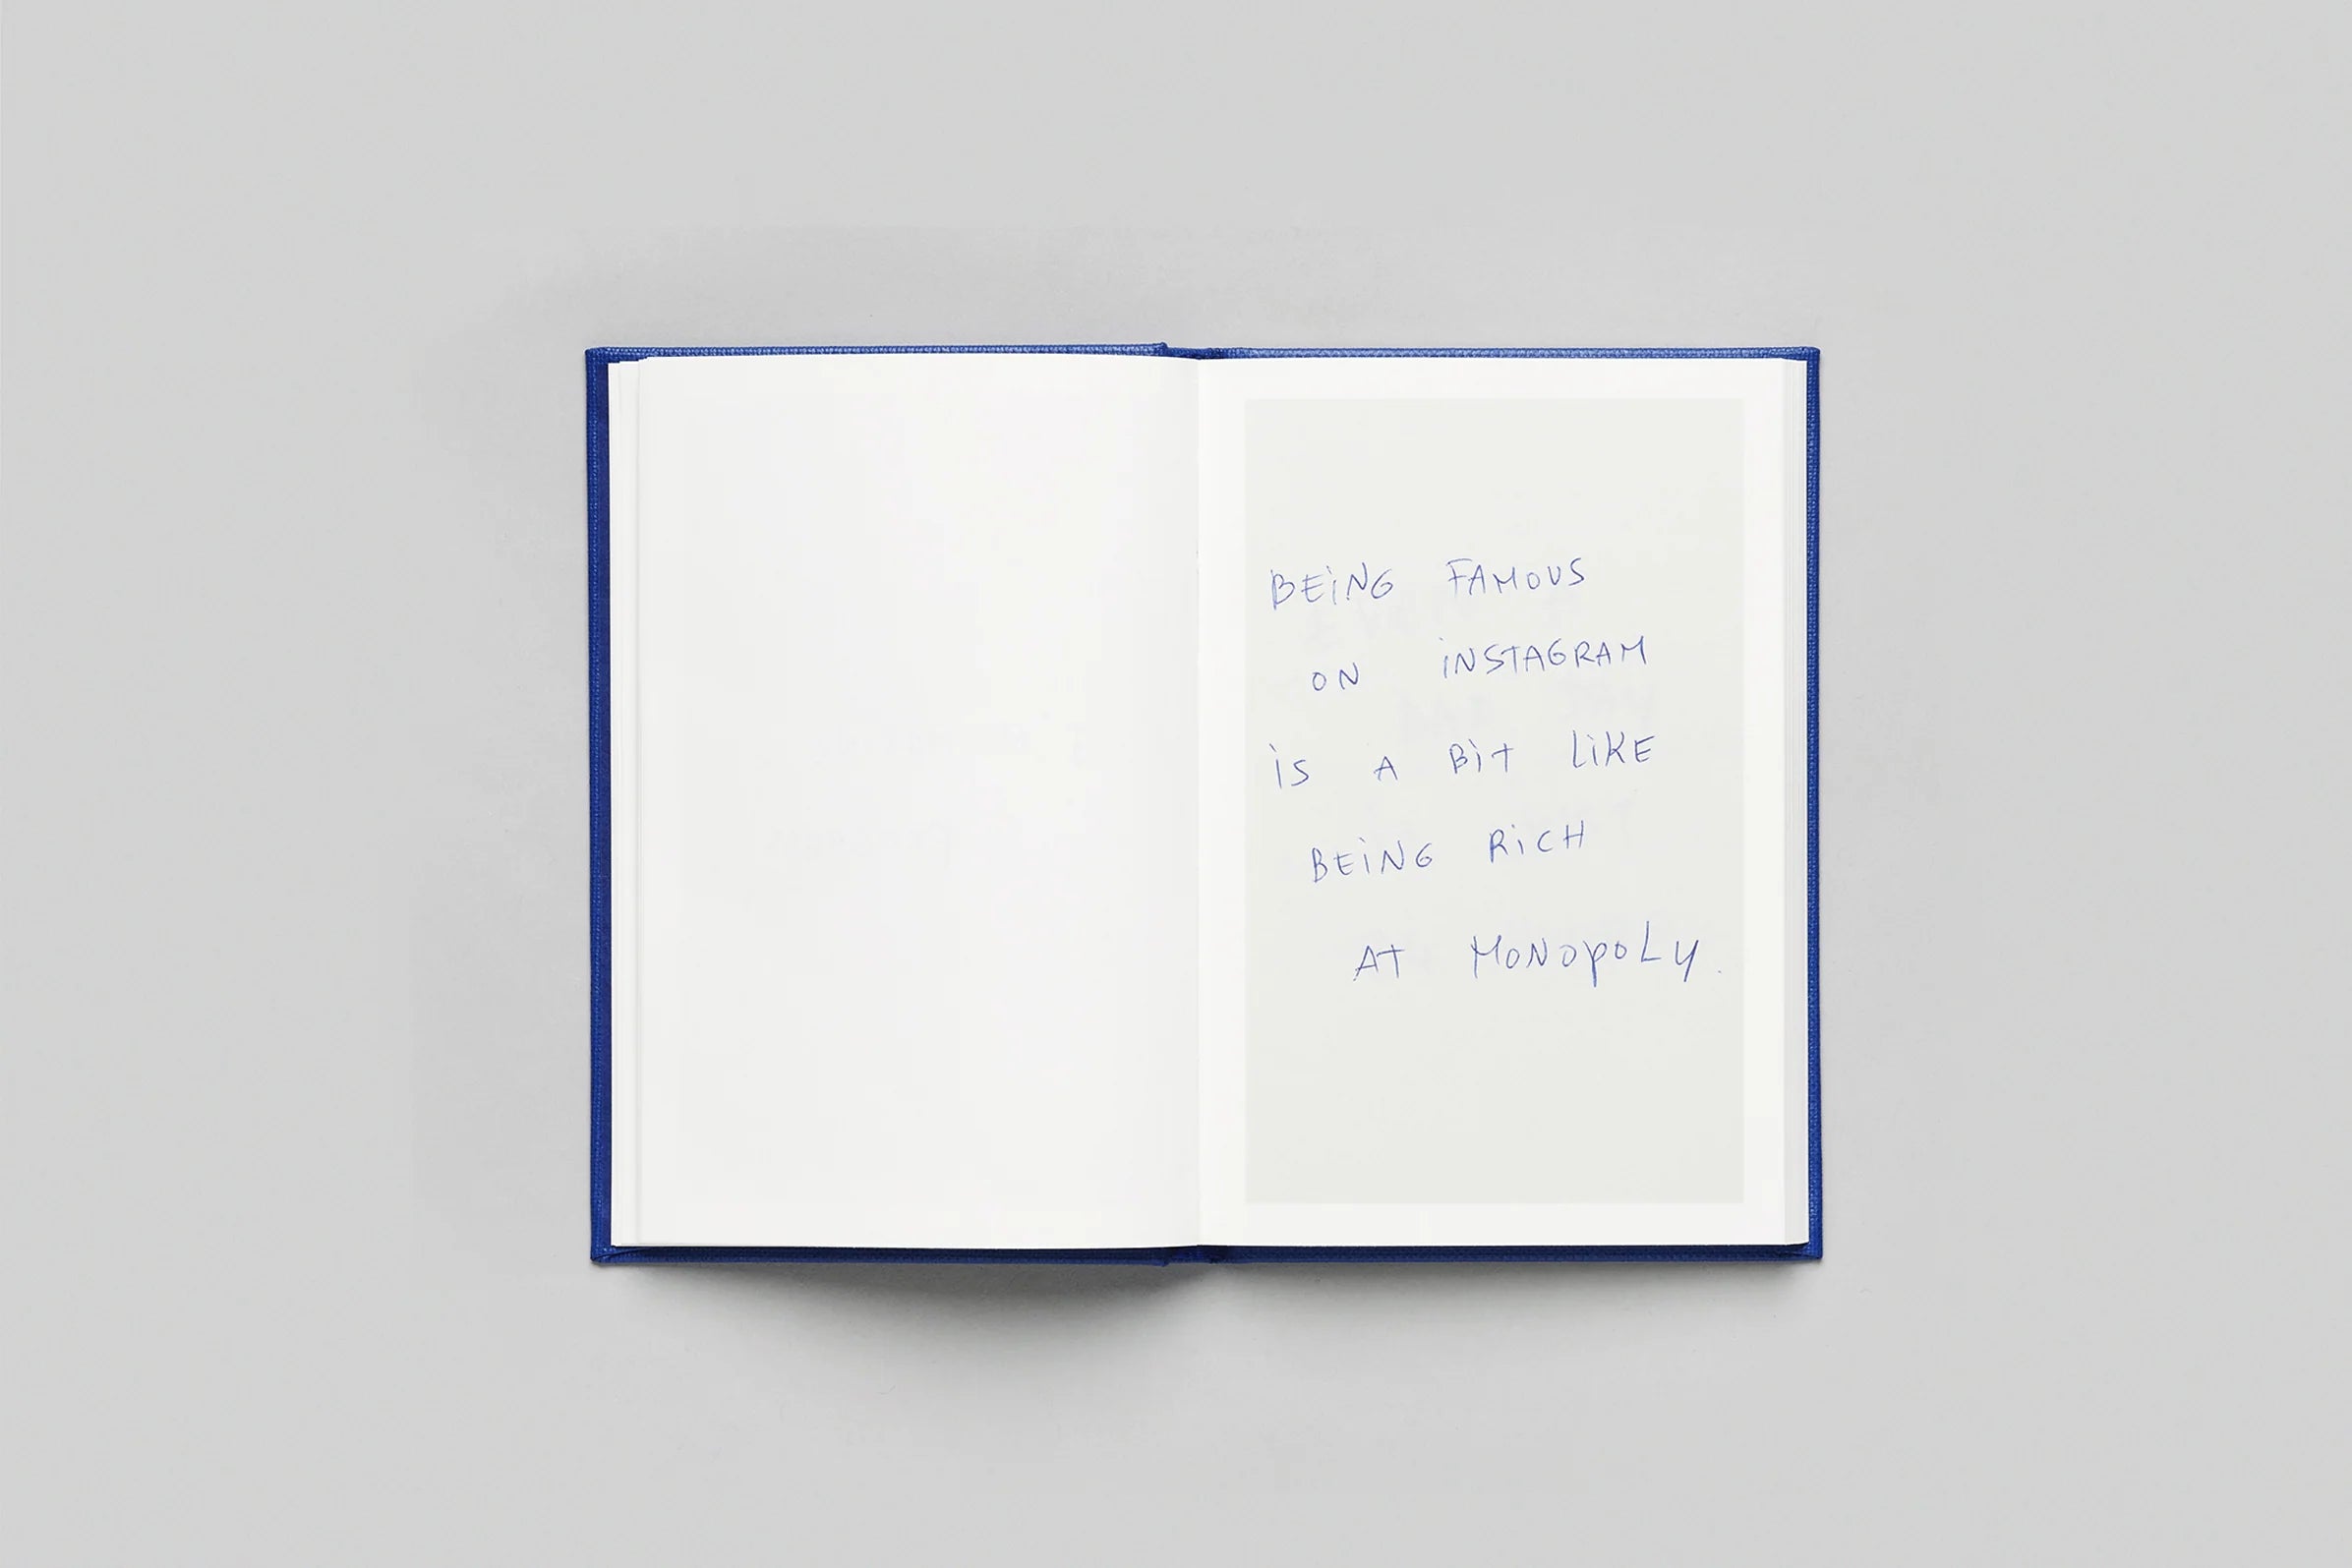 BEiNG FAMOUS
ON iNSTAGRAM
iS A BiT LiKE
BEiNG RiCH
AT MONOpoLy.